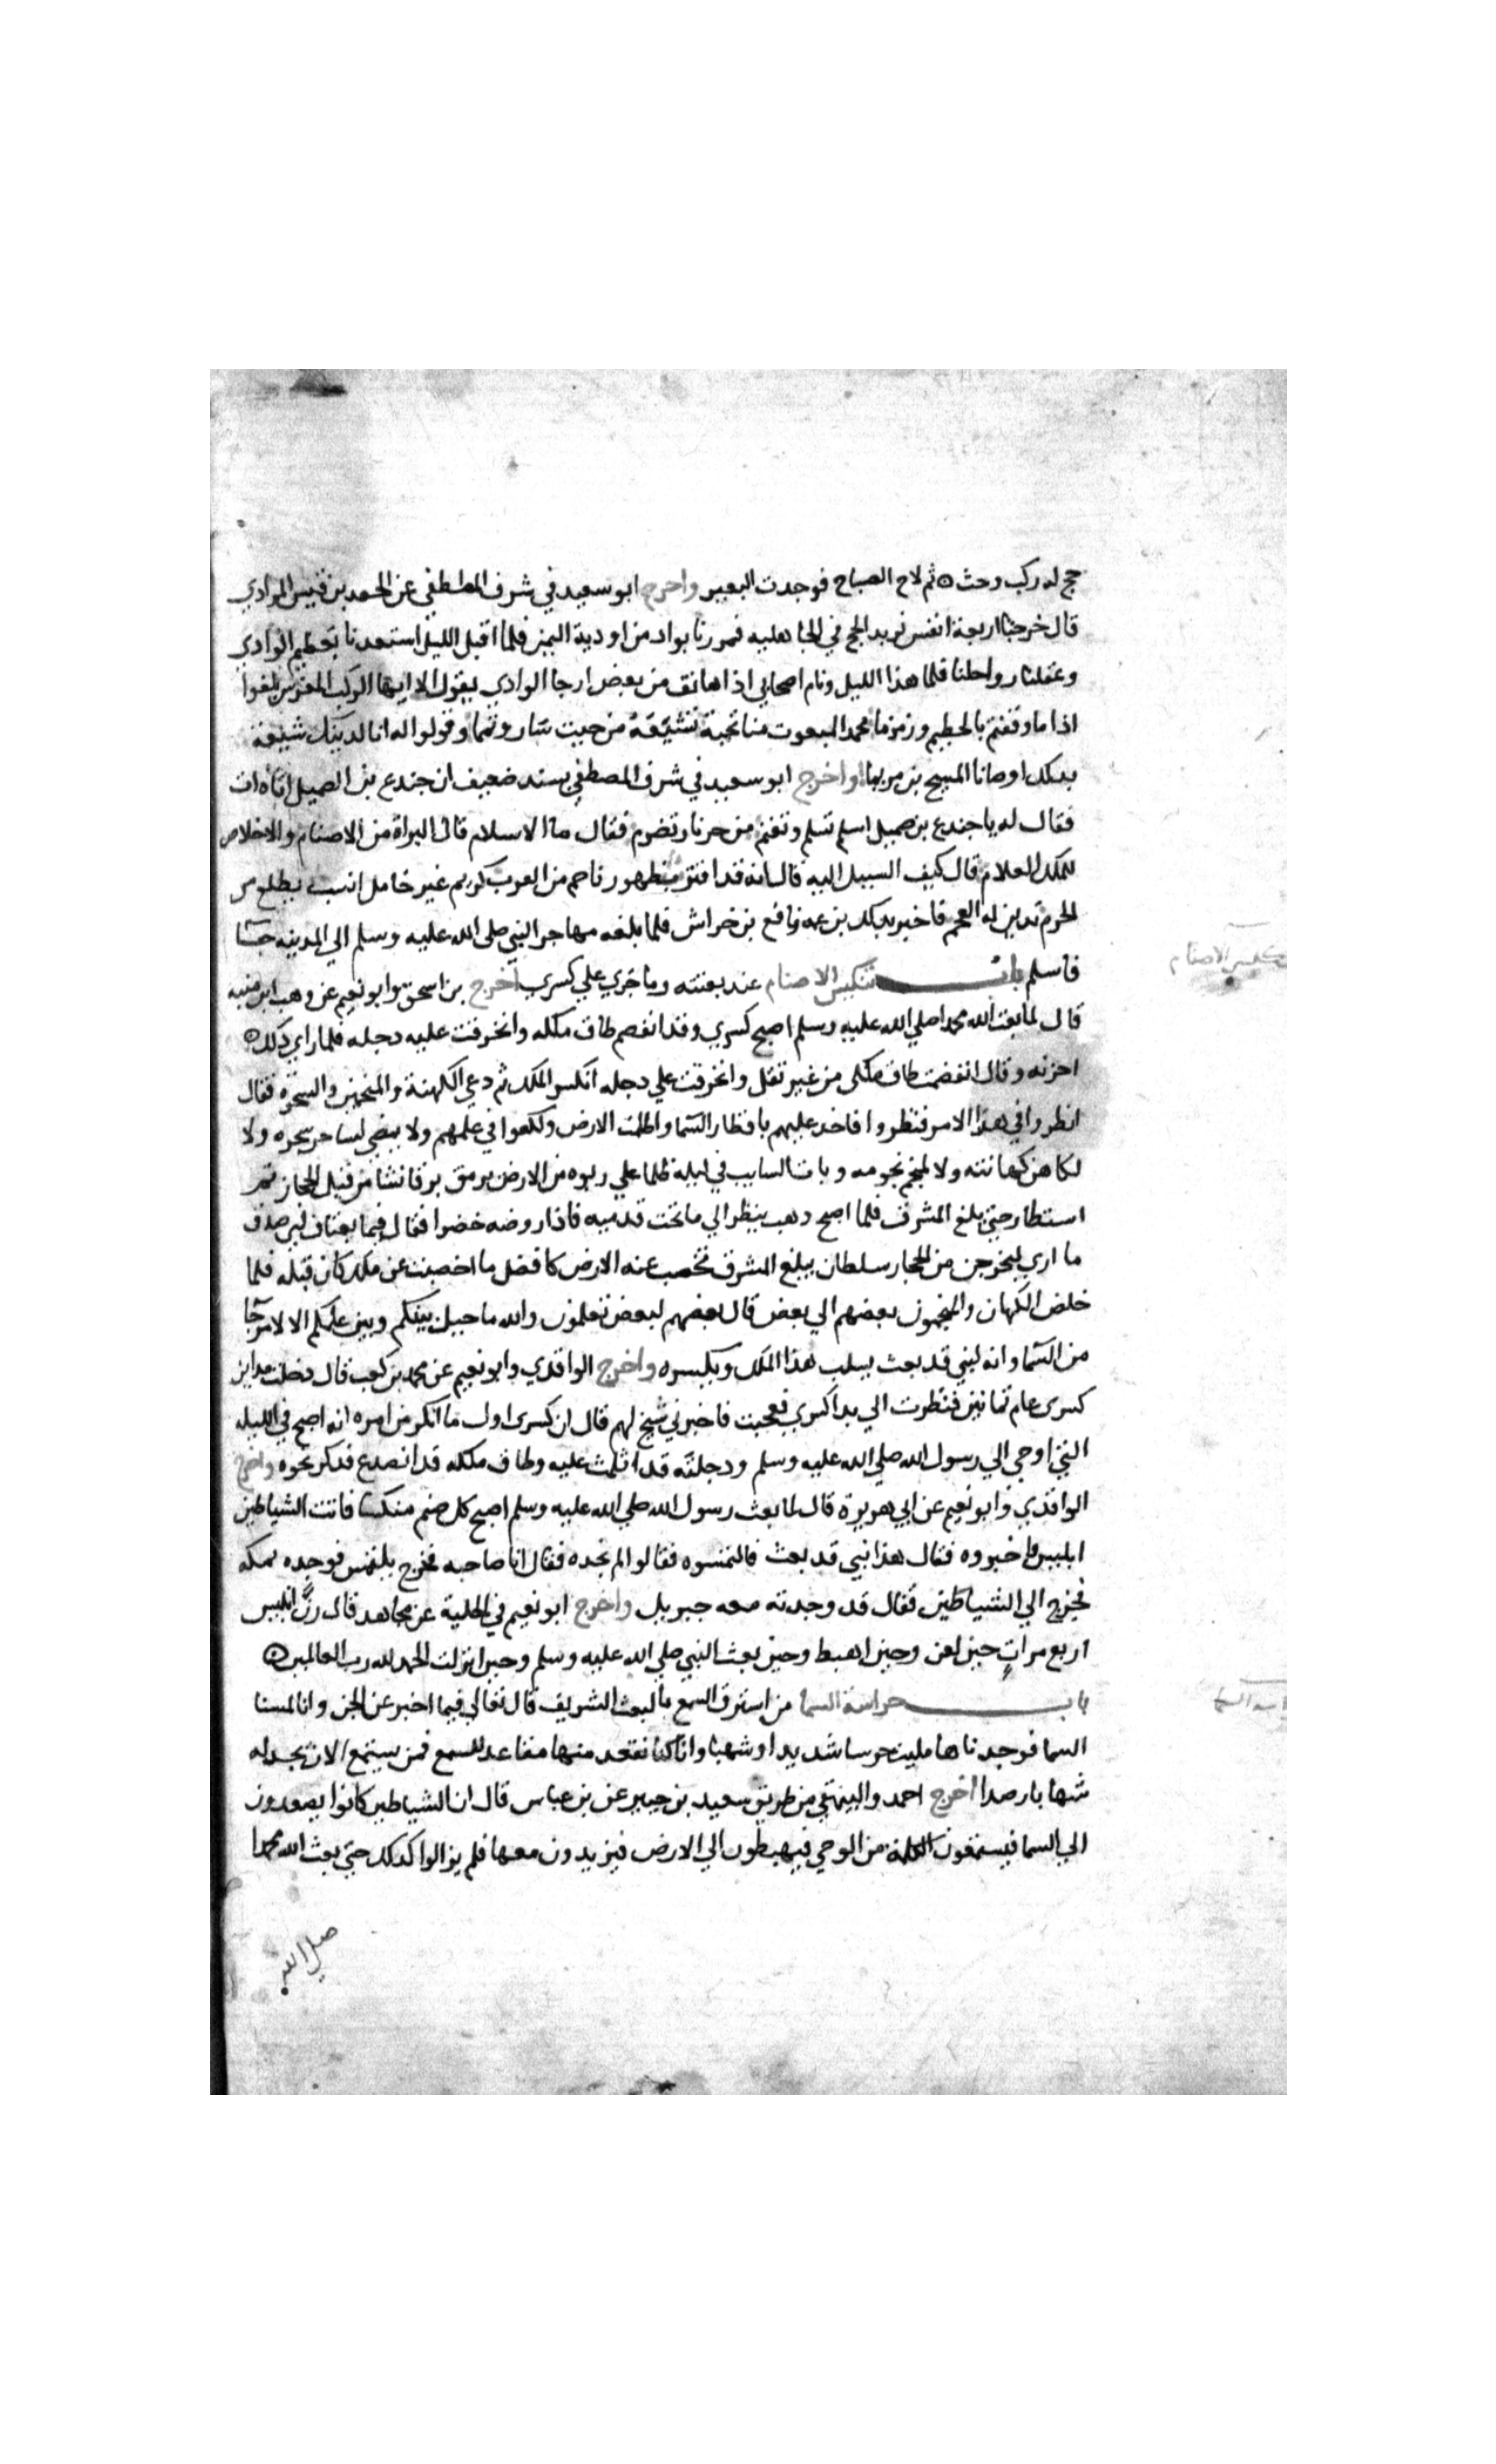 حج له ركب وحث ۞ ثم لاح الصباح فوجدت البعير واخرج ابو سعيد في شرف المصطفى عن الجعد بن قيس المرادي
قال خرجنا اربعة انفس نريد الحج في الجاهليه فمررنا بواد من اودية اليمن فلما اقبل الليل استعدنا بعظيم الوادي
وعقلنا رواحلنا فلما هدا الليل ونام اصحابي اذا هاتف من بعض ارجا الوادي يقول الا ايها الركب المعرس بلغوا
اذا ما وقفتم بالحطيم وزمزما محمد المبعوث منا تحية تشيعه من حيث سار ويمما وقولوا له انا لدينك شيعة
بدلك اوصانا المسيح بن مريما واخرج ابو سعيد في شرف المصطفى بسند ضعيف ان جندع بن الصميل اتاه ات
فقال له يا جندع بن صميل اسلم تسلم وتغنم من حر نار تضرم فقال ما الاسلام قال البراة من الاصنام والاخلاص
للملك العلام قال كيف السبيل اليه قال انه قد اقترب ظهور ناجم من العرب كريم غير خامل النسب يطلع من
الحرم تدين له العجم فاخبر بدلك بن عمه رافع بن خراش فلما بلغه مهاجر النبي صلى الله عليه وسلم الي المدينه جا
فاسلم باب تنكيس الاصنام عند بعثته وما جري علي كسري اخرج بن اسحق وابو نعيم عن وهب بن منبه
قال لما بعث الله محمدا صلي الله عليه وسلم اصبح كسري وقد انفصم طاق ملكه وانخرقت عليه دجله فلما راي دلك ۞
احزنه وقال انفصمت طاق ملكي من غير ثقل وانخرقت علي دجله انكسر الملك ثم دعي الكهنة والمنجمين والسحره فقال
انظروا في هذا الامر فنظروا فاخد عليهم باقطار السما واظلمت الارض ولكعوا في علمهم ولا يمضي لساحر سحره ولا
لكاهن كهانته ولا لمنجم نجومه وبات السايب في ليلة ظلما علي ربوه من الارض يرمق برقا نشا من قبل الحجاز ثم
استطار حتي بلغ المشرق فلما اصبح دهب ينظر الي ما تحت قدميه فاذا روضه خضرا فقال فيما يعتاف لين صدق
ما اري ليخرجن من الحجاز سلطان يبلغ المشرق تخصب عنه الارض كافضل ما اخصبت عن ملك كان قبله فلما
خلص الكهان والمنجمون بعضهم الي بعض قال بعضهم لبعض تعلمون والله ما حيل بينكم وبين علمكم الا لامر جا
من السما وانه لنبي قد بعث يسلب هذا الملك ويكسره واخرج الواقدي وابو نعيم عن محمد بن كعب قال دخلت مداين
كسري عام ثمانين فنظرت الي بنا كسري فعجبت فاخبرني شيخ لهم قال ان كسري اول ما انكر من امره انه اصبح في الليله
التي اوحي الي رسول الله صلي الله عليه وسلم ودجلته قد انثلمت عليه وطاق ملكه قد انصدع فدكر نحوه واخرج
الواقدي وابو نعيم عن ابي هريرة قال لما بعث رسول الله صلي الله عليه وسلم اصبح كل صنم منكسا فاتت الشياطين
ابليس فاخبروه فقال هذا نبي قد بعث فالتمسوه فقالوا لم نجده فقال انا صاحبه فخرج يلتمس فوجده بمكه
فخرج الي الشياطين فقال قد وجدته معه جبريل واخرج ابو نعيم في الحلية عن مجاهد قال رن ابليس
اربع مرات حين لعن وحين اهبط وحين بعث النبي صلي الله عليه وسلم وحين انزلت الحمد لله رب العالمين ۞
باب حراسة السما من استرق السمع بالبعث الشريف قال تعالي فيما اخبر عن الجن وانا لمسنا
السما فوجدناها مليت حرسا شديدا وشهبا وانا كنا نقعد منها مقاعد للسمع فمن يستمع الان يجد له
شهابا رصدا اخرج احمد والبيهقي من طريق سعيد بن جبير عن بن عباس قال ان الشياطين كانوا يصعدون
الي السما فيستمعون الكلمة من الوحي فيهبطون الي الارض فيزيدون معها فلم يزالوا كدلك حتي بعث الله محمدا
صلي الله
تنكيس الاصنام